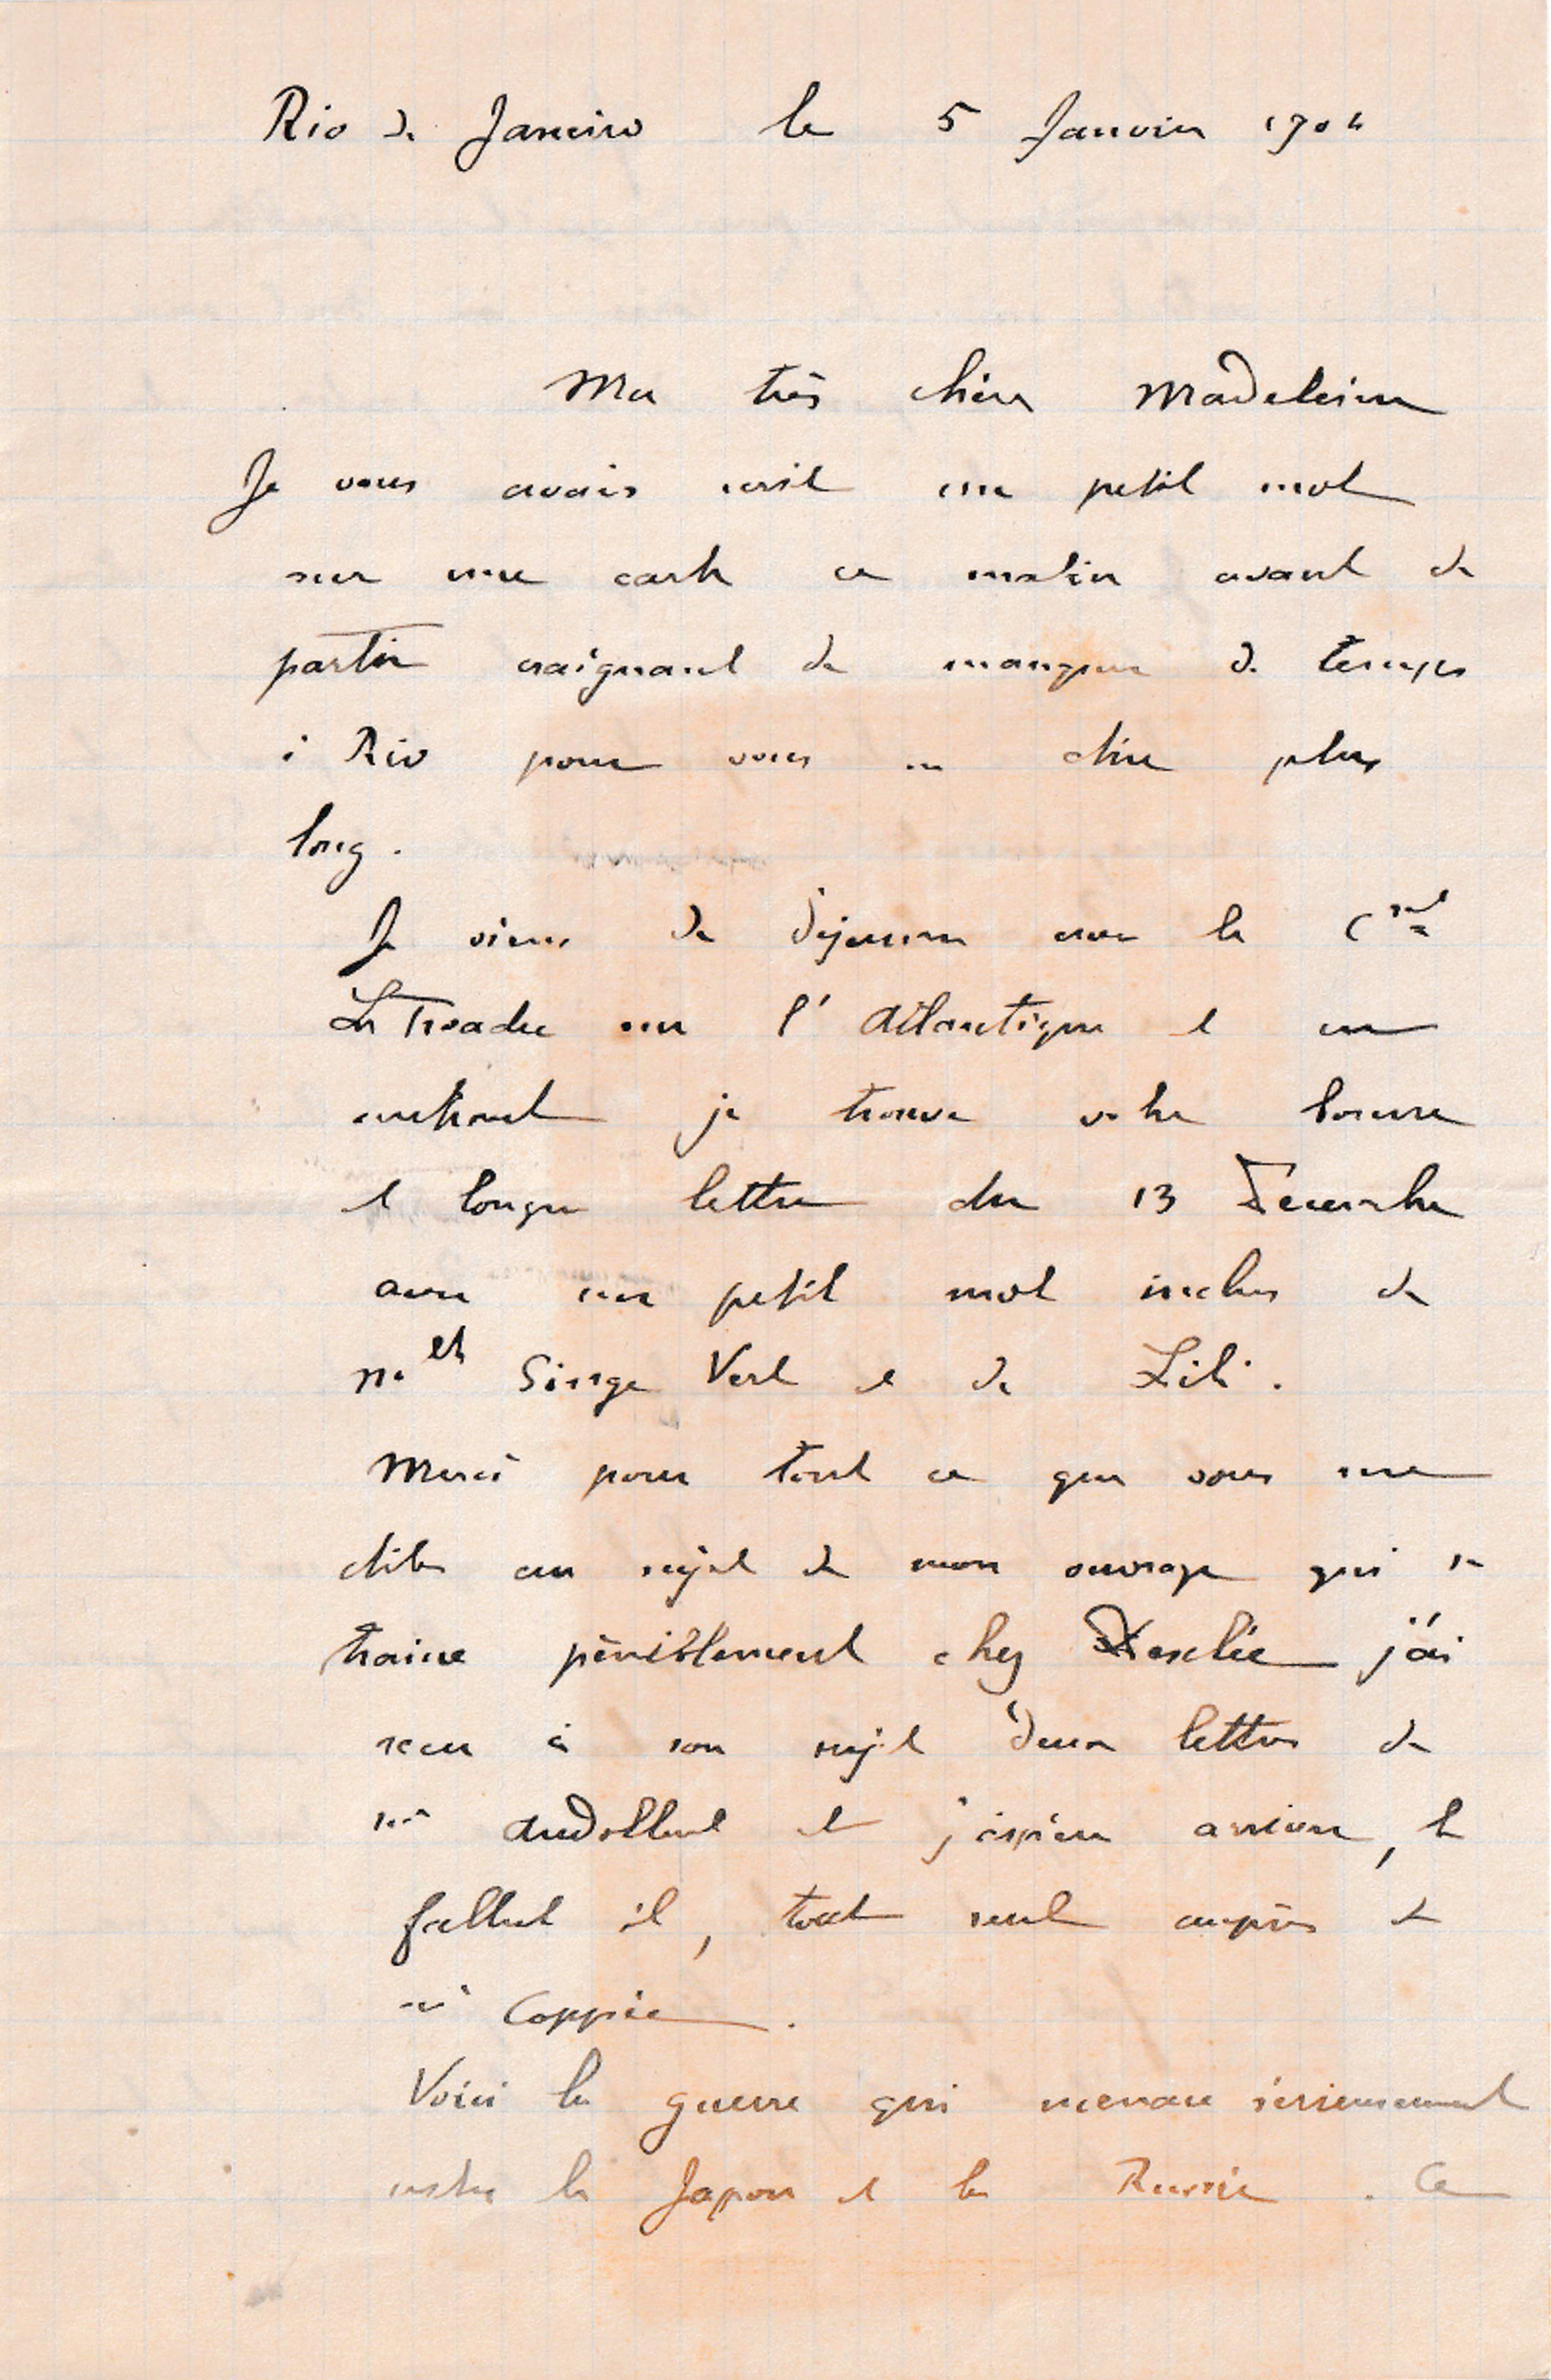 Rio de Janeiro le 5 Janvier 1904
Ma très chère Madeleine
Je vous avais écrit un petit mot
sur une carte ce matin avant de
partir craignant de manquer de temps
à Rio pour vous en dire plus
long.
Je viens de déjeuner avec le
Le Troadec sur l'Atlantique et en
rentrant je trouve votre bonne
et longue lettre du 13 Décembre
avec un petit mot inclus de
Singe Vert et de Lili.
Merci pour tout ce que vous me
dites au sujet de mon ouvrage qui se
traine péniblement chez Desclée j'ai
recu à son sujet deux lettres de
Mr Audollent et j'espère arriver, le
fallut il, tout seul auprès de
Mr Coppée.
Voici la guerre qui menace sérieusement
entre le Japon et la Russie. Ce